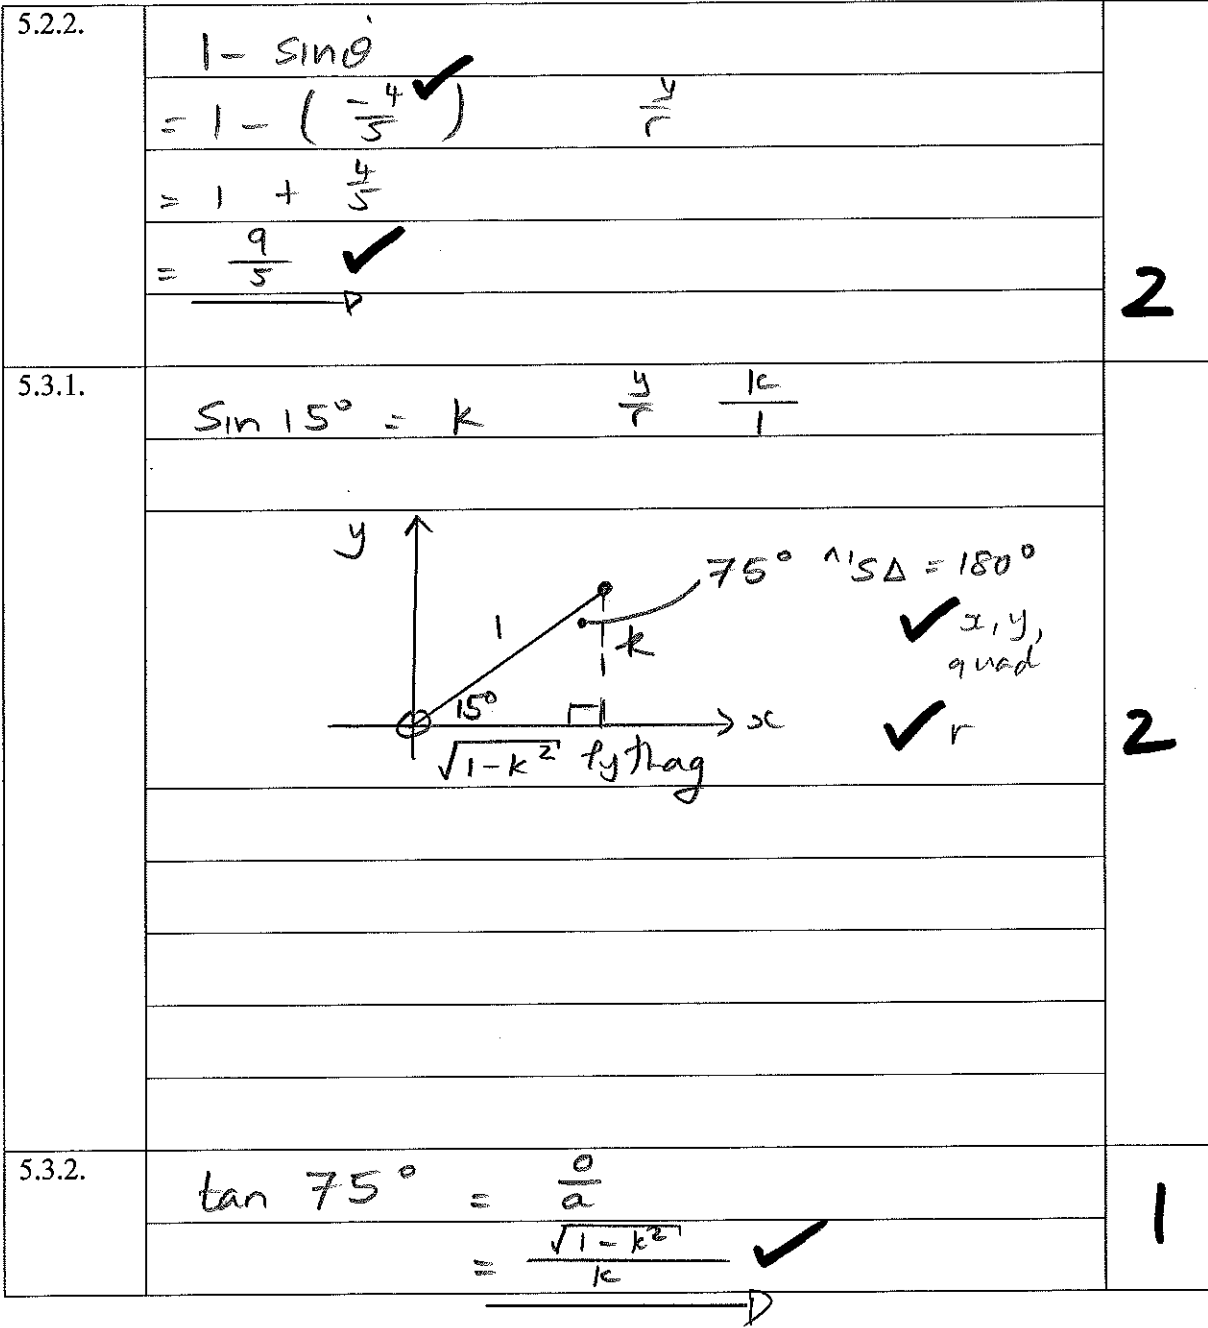 5.2.2.
1 - sinθ
= 1 - ( -4/5 ) ✓ y/r
= 1 + 4/5
= 9/5 ✓
2
5.3.1.
Sin 15° = k y/r k/1
y
75° ^'s Δ = 180°
1
k
✓ x, y,
quad
15°
x
✓ r
2
√(1-k²) Pythag
5.3.2.
tan 75° = o/a
1
= √(1-k²)/k ✓